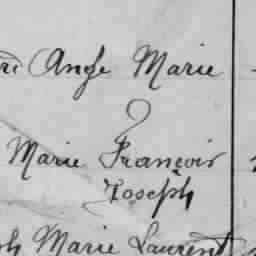 Ange Marie
Marie François
Joseph
Marie Laurent